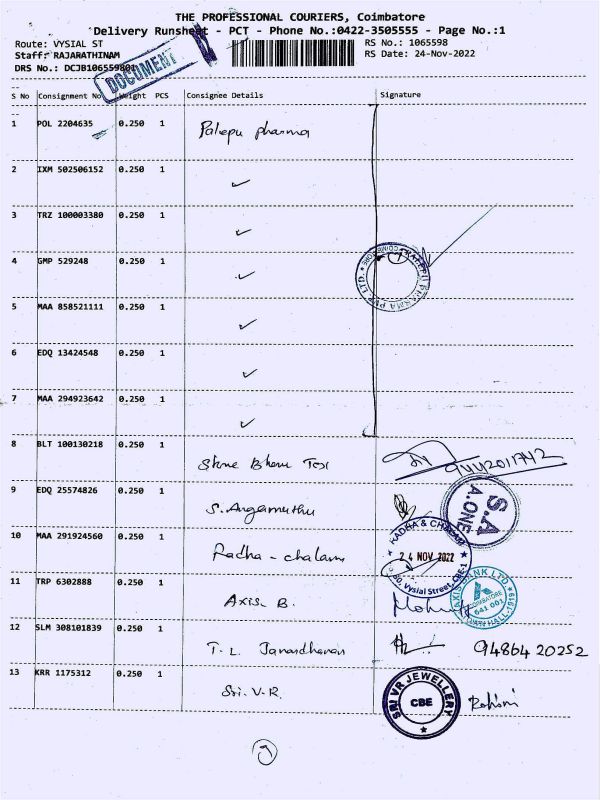 THE PROFESSIONAL COURIERS, Coimbatore
Delivery Runsheet - PCT - Phone No.:0422-3505555 - Page No.:1
Route: VYSIAL ST RS No.: 1065598
Staff: RAJARATHINAM RS Date: 24-Nov-2022
DRS No.: DCJB106559801
DOCUMENT
S No Consignment No Weight PCS Consignee Details Signature
1 POL 2204635 0.250 1 Palepu pharma
2 IXM 502506152 0.250 1 ✓
3 TRZ 100003380 0.250 1 ✓
4 GMP 529248 0.250 1 ✓
COIMBATORE
5 MAA 858521111 0.250 1 ✓
6 EDQ 13424548 0.250 1 ✓
7 MAA 294923642 0.250 1 ✓
8 BLT 100130218 0.250 1 9442011742
9 EDQ 25574826 0.250 1 S. Angamuthu
S.A
A.ONE
10 MAA 291924560 0.250 1 Radha - chalam
RADHA & CHALAM
24 NOV 2022
Vysial Street, CBE-1
11 TRP 6302888 0.250 1 Axis. B.
AXIS BANK LTD
COIMBATORE
641 001
TOWN HALL
12 SLM 308101839 0.250 1 T. L. Janardhanan 94864 20252
13 KRR 1175312 0.250 1 Sri. V. R.
SRI VR JEWELLERY
CBE
9